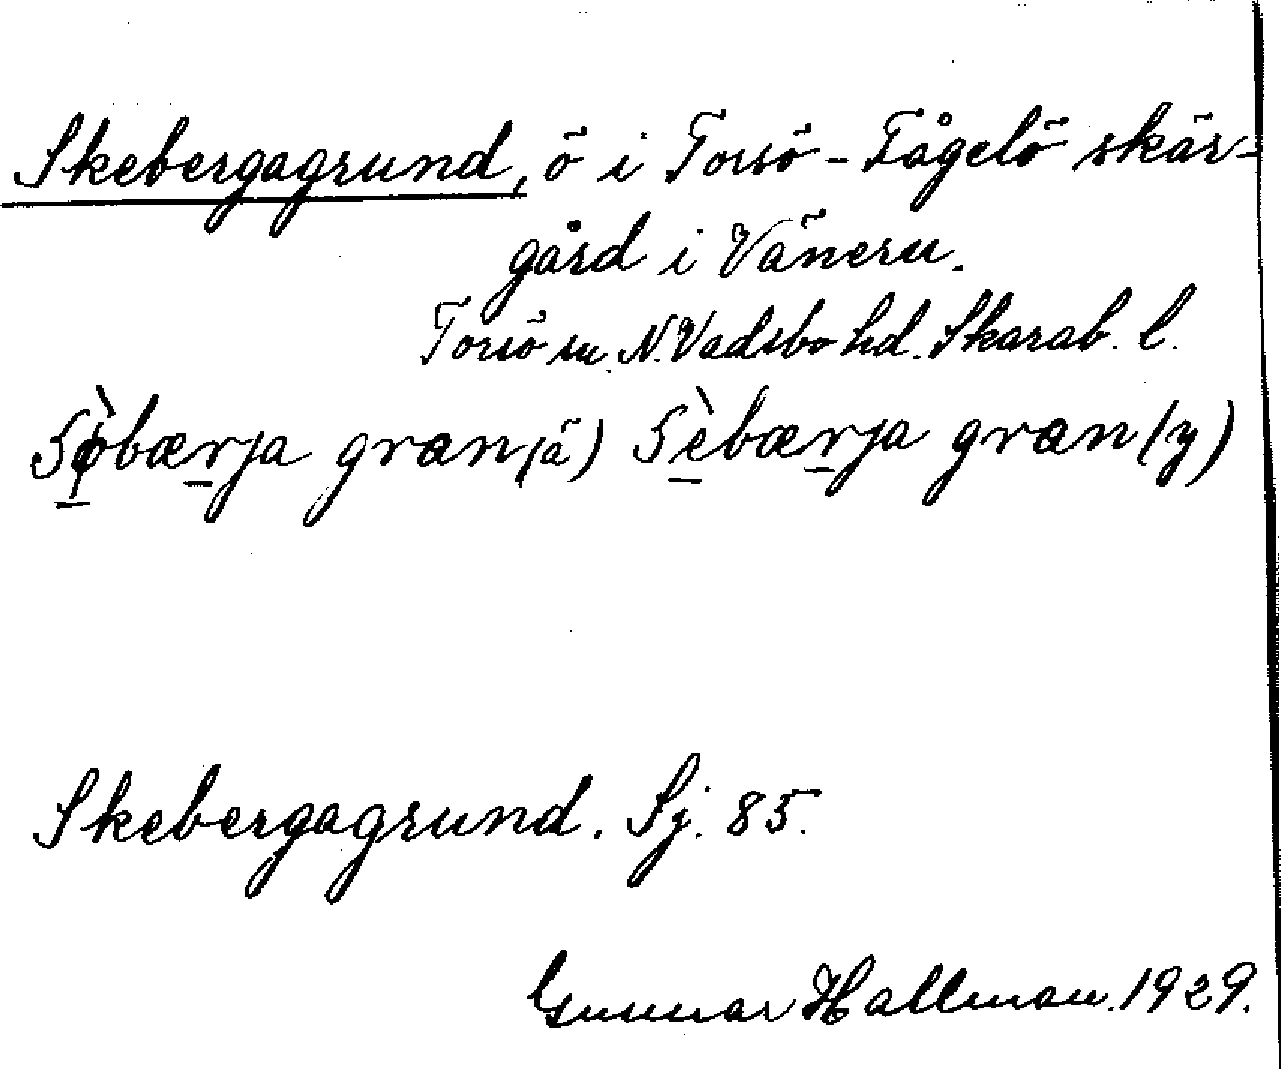 Skebergagrund, ö i Torsö-Fågelö skär-
gård i Vänern.
Torsö sn. N. Vadsbo hd. Skarab. l.
Sø̀bærja gran (ä) Sèbærja gran (y)
Skebergagrund. Sj. 85.
Gunnar Hallman. 1929.